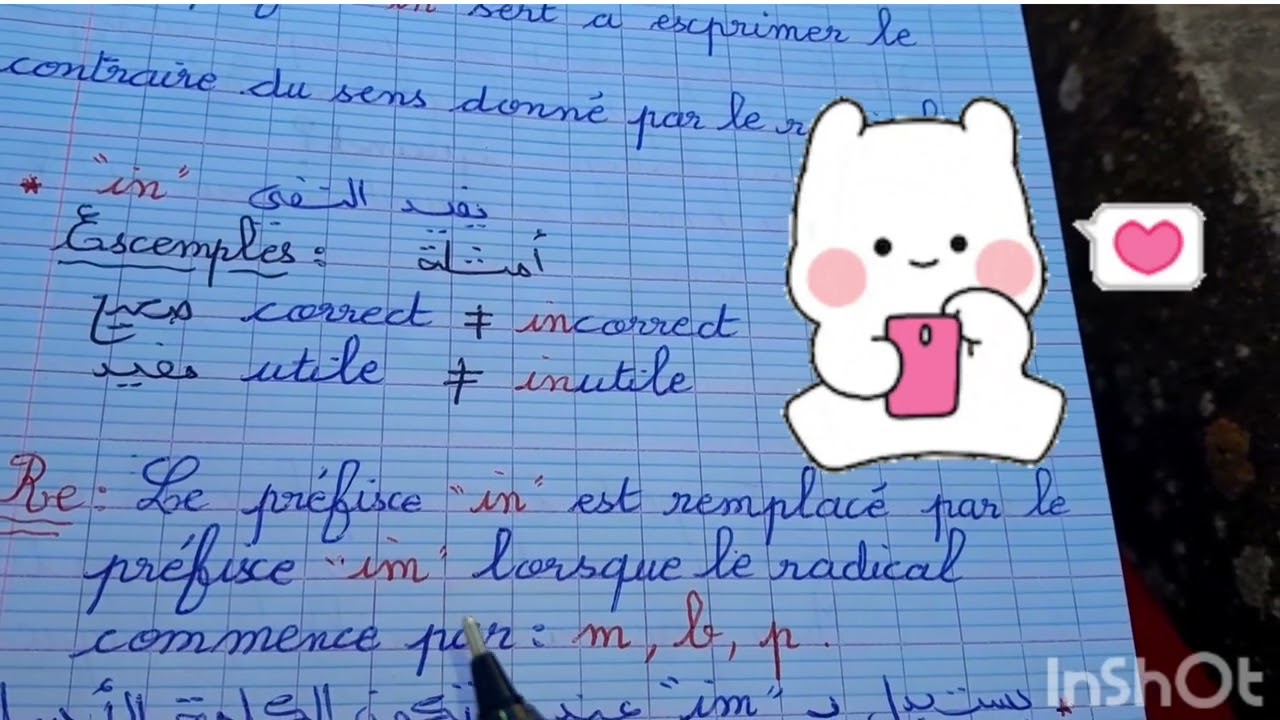 in sert a exprimer le
contraire du sens donné par le
* "in" يفيد النفي
Exemples: أمثلة
صحيح correct ≠ incorrect
مفيد utile ≠ inutile
Re: Le préfixe "in" est remplacé par le
préfixe "im" lorsque le radical
commence par: m, b, p.
* يستبدل بـ "im" عند
InShOt